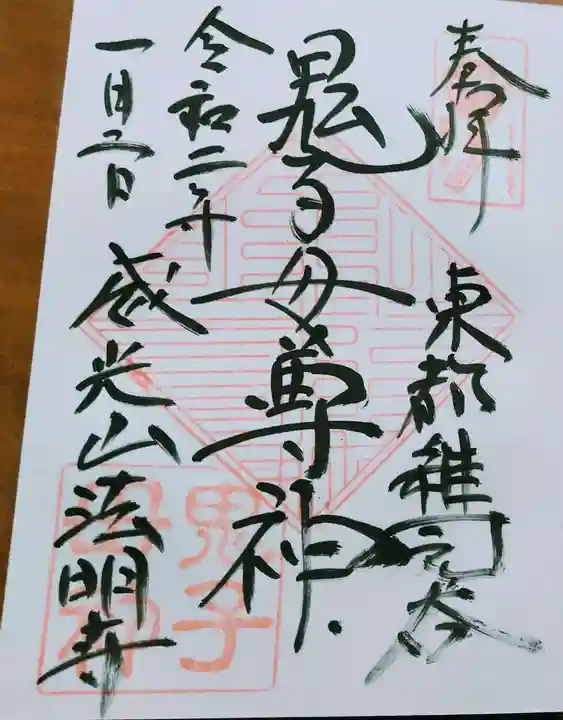 奉拝
東都雑司谷
鬼子母尊神
令和二年
一月二日
威光山法明寺
鬼子
母神